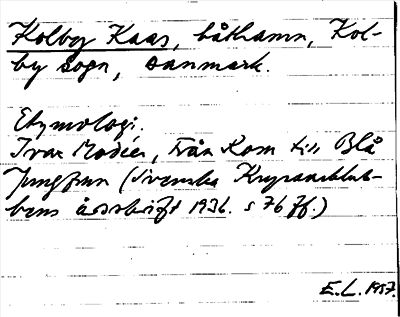 Kolby Kaas, båthamn, Kol-
by sogn, Danmark.
Etymologi.
Ivar Modéer, Från Rom till Blå
Jungfrun (Svenska Kryssareklub-
bens årsskrift 1936. s 76 ff.)
E.L. 1957.